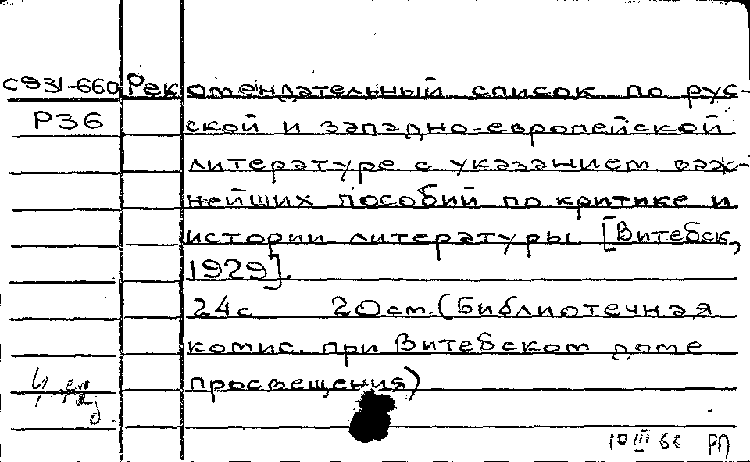 С931-660 Рекомендательный список по рус-
Р36 ской и западно-европейской
литературе с указанием важ-
нейших пособий по критике и
истории литературы. [Витебск,
1929].
24с 20см. (Библиотечная
комис. при Витебском доме
просвещения)
10 III 66 РП